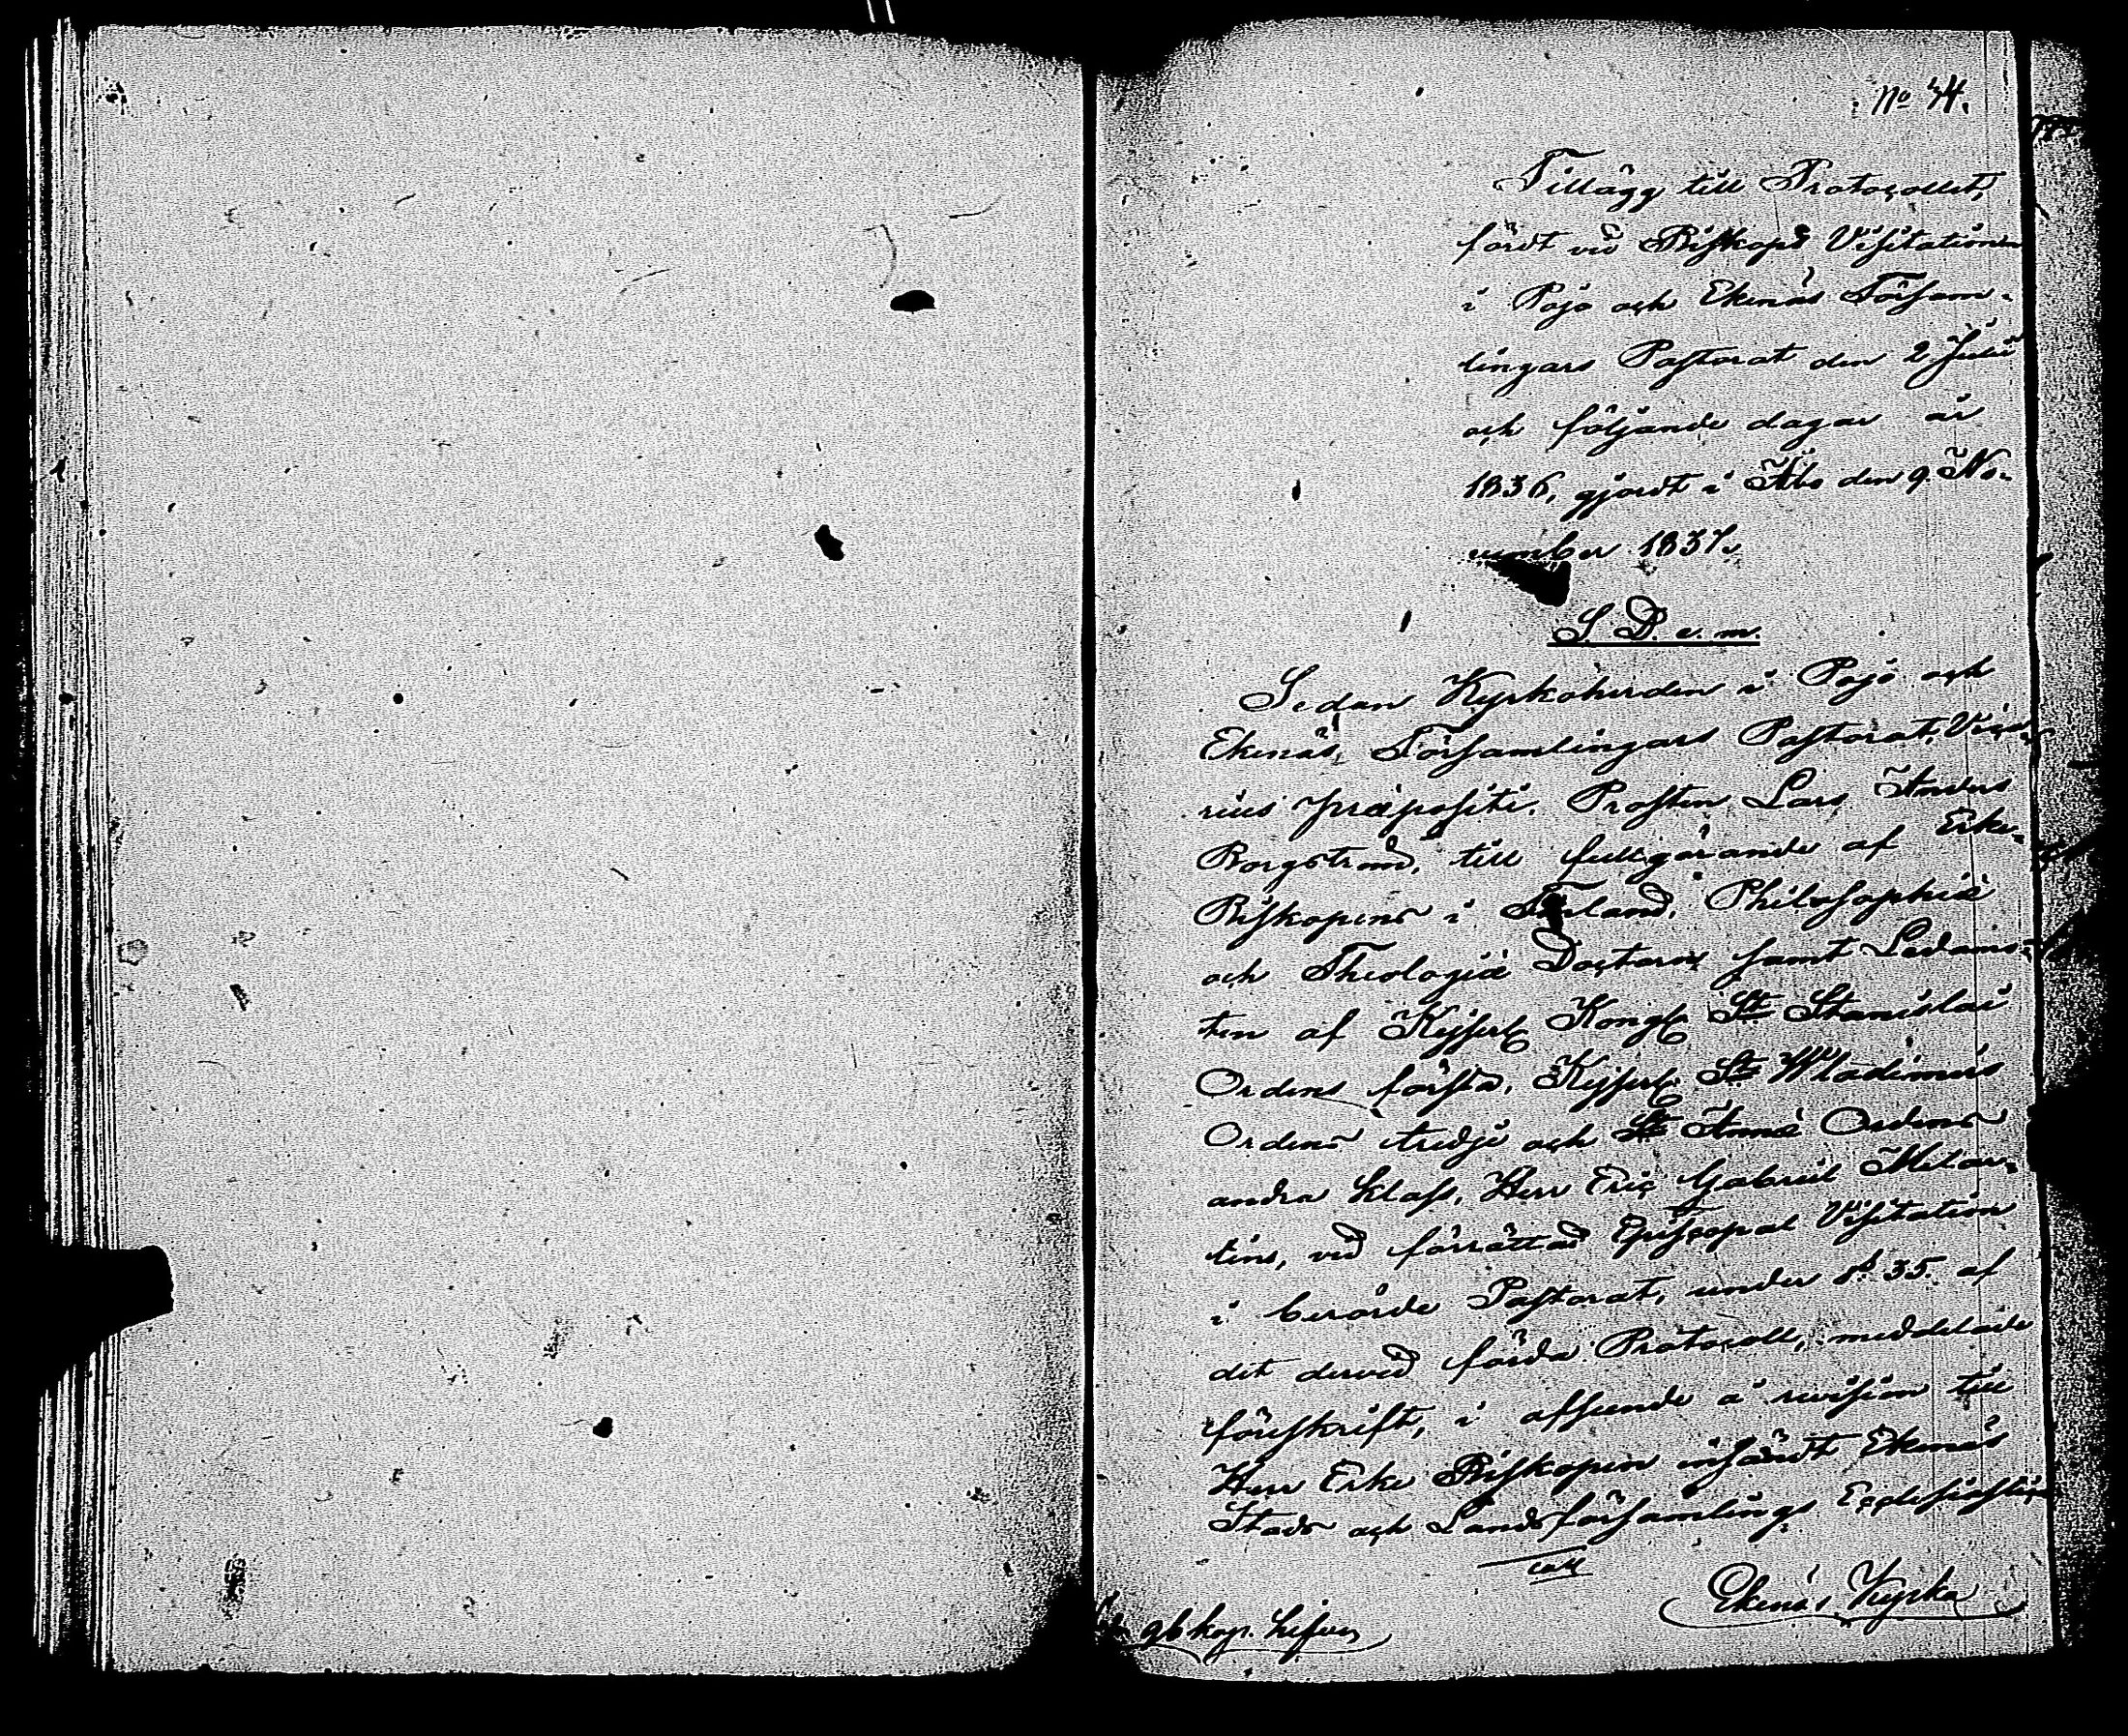 No 34.
Tillägg till Protocollet,
fördt vid Biskops Visitationen
i Pojo och Ekenäs Försam-
lingars Pastorat den 2 Julii
och följande dagar år
1836, gjordt i Åbo den 9. No-
vember 1837.
S. D. e. m.
Sedan Kyrkoherden i Pojo och
Ekenäs Församlingars Pastorat, Vica-
rius præpositi, Prosten Lars Anders
Borgström, till fullgörande af Erke-
Biskopens i Finland, Philosophiæ
och Theologiæ Doctorn samt Ledamo-
ten af Kejserl. Kongl. St. Stanislai
Ordens första, Kejserl. St. Wladimirs
Ordens tredje och St. Annæ Ordens
andra klass, Herr Eric Gabriel Melar-
tins, vid förrättad Episcopal Visitation
i berörde Pastorat, under §. 35. af
det dervid förda Protocoll, meddelade
föreskrift, i afseende å revision till
Herr Erke Biskopen insändt Ekenäs
Stads och Landsförsamlings Ecclesiastic
Ekenäs Kyrka
96 kop. Silfver